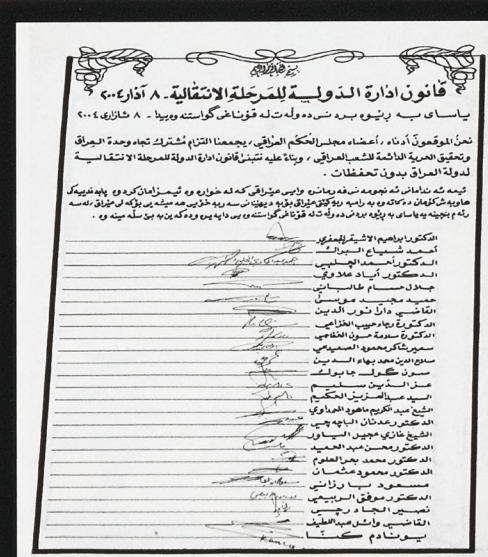 بسم الله الرحمن الرحيم
قانون ادارة الدولة للمرحلة الانتقالية - ٨ آذار ٢٠٠٤
ياساى به ڕێوه بردنى ده وڵه ت له قۆناغى گواستنه وه يدا - ٨ ئازارى ٢٠٠٤
نحنُ الموقعون أدناه ، أعضاء مجلس الحكم العراقي ، يجمعنا التزام مُشترك تجاه وحدة العراق
وتحقيق الحرية الدائمة للشعب العراقي ، وبناءً عليه نتبنى قانون ادارة الدولة للمرحلة الانتقالية
لدولة العراق بدون تحفظات .
ئيمه ئه ندامانى ئه نجومه نى فه رمانره وايى عيراقى كه له خواره وه ئيمزامان كردوه
الدكتور ابراهيم الاشيقر الجعفري
أحمد شياع البراك
الدكتور أحمد الچلبي
الدكتور أياد علاوي
جلال حسام طالباني
حميد مجيد موسى
القاضي دارا نور الدين
الدكتورة رجاء حبيب الخزاعي
الدكتورة سلامة حسون الخفاجي
سمير شاكر محمود الصميدعي
صلاح الدين محمد بهاء الدين
سون گول چابوك
عز الدين سليم
السيد عبد العزيز الحكيم
الشيخ عبد الكريم ماهود المحمداوي
الدكتور عدنان الباچه چي
الشيخ غازي عجيل الياور
الدكتور محسن عبد الحميد
الدكتور محمد بحر العلوم
الدكتور محمود عثمان
مسعود بارزاني
الدكتور موفق الربيعي
نصير الچادرچي
القاضي وائل عبد اللطيف
يونادم كنا